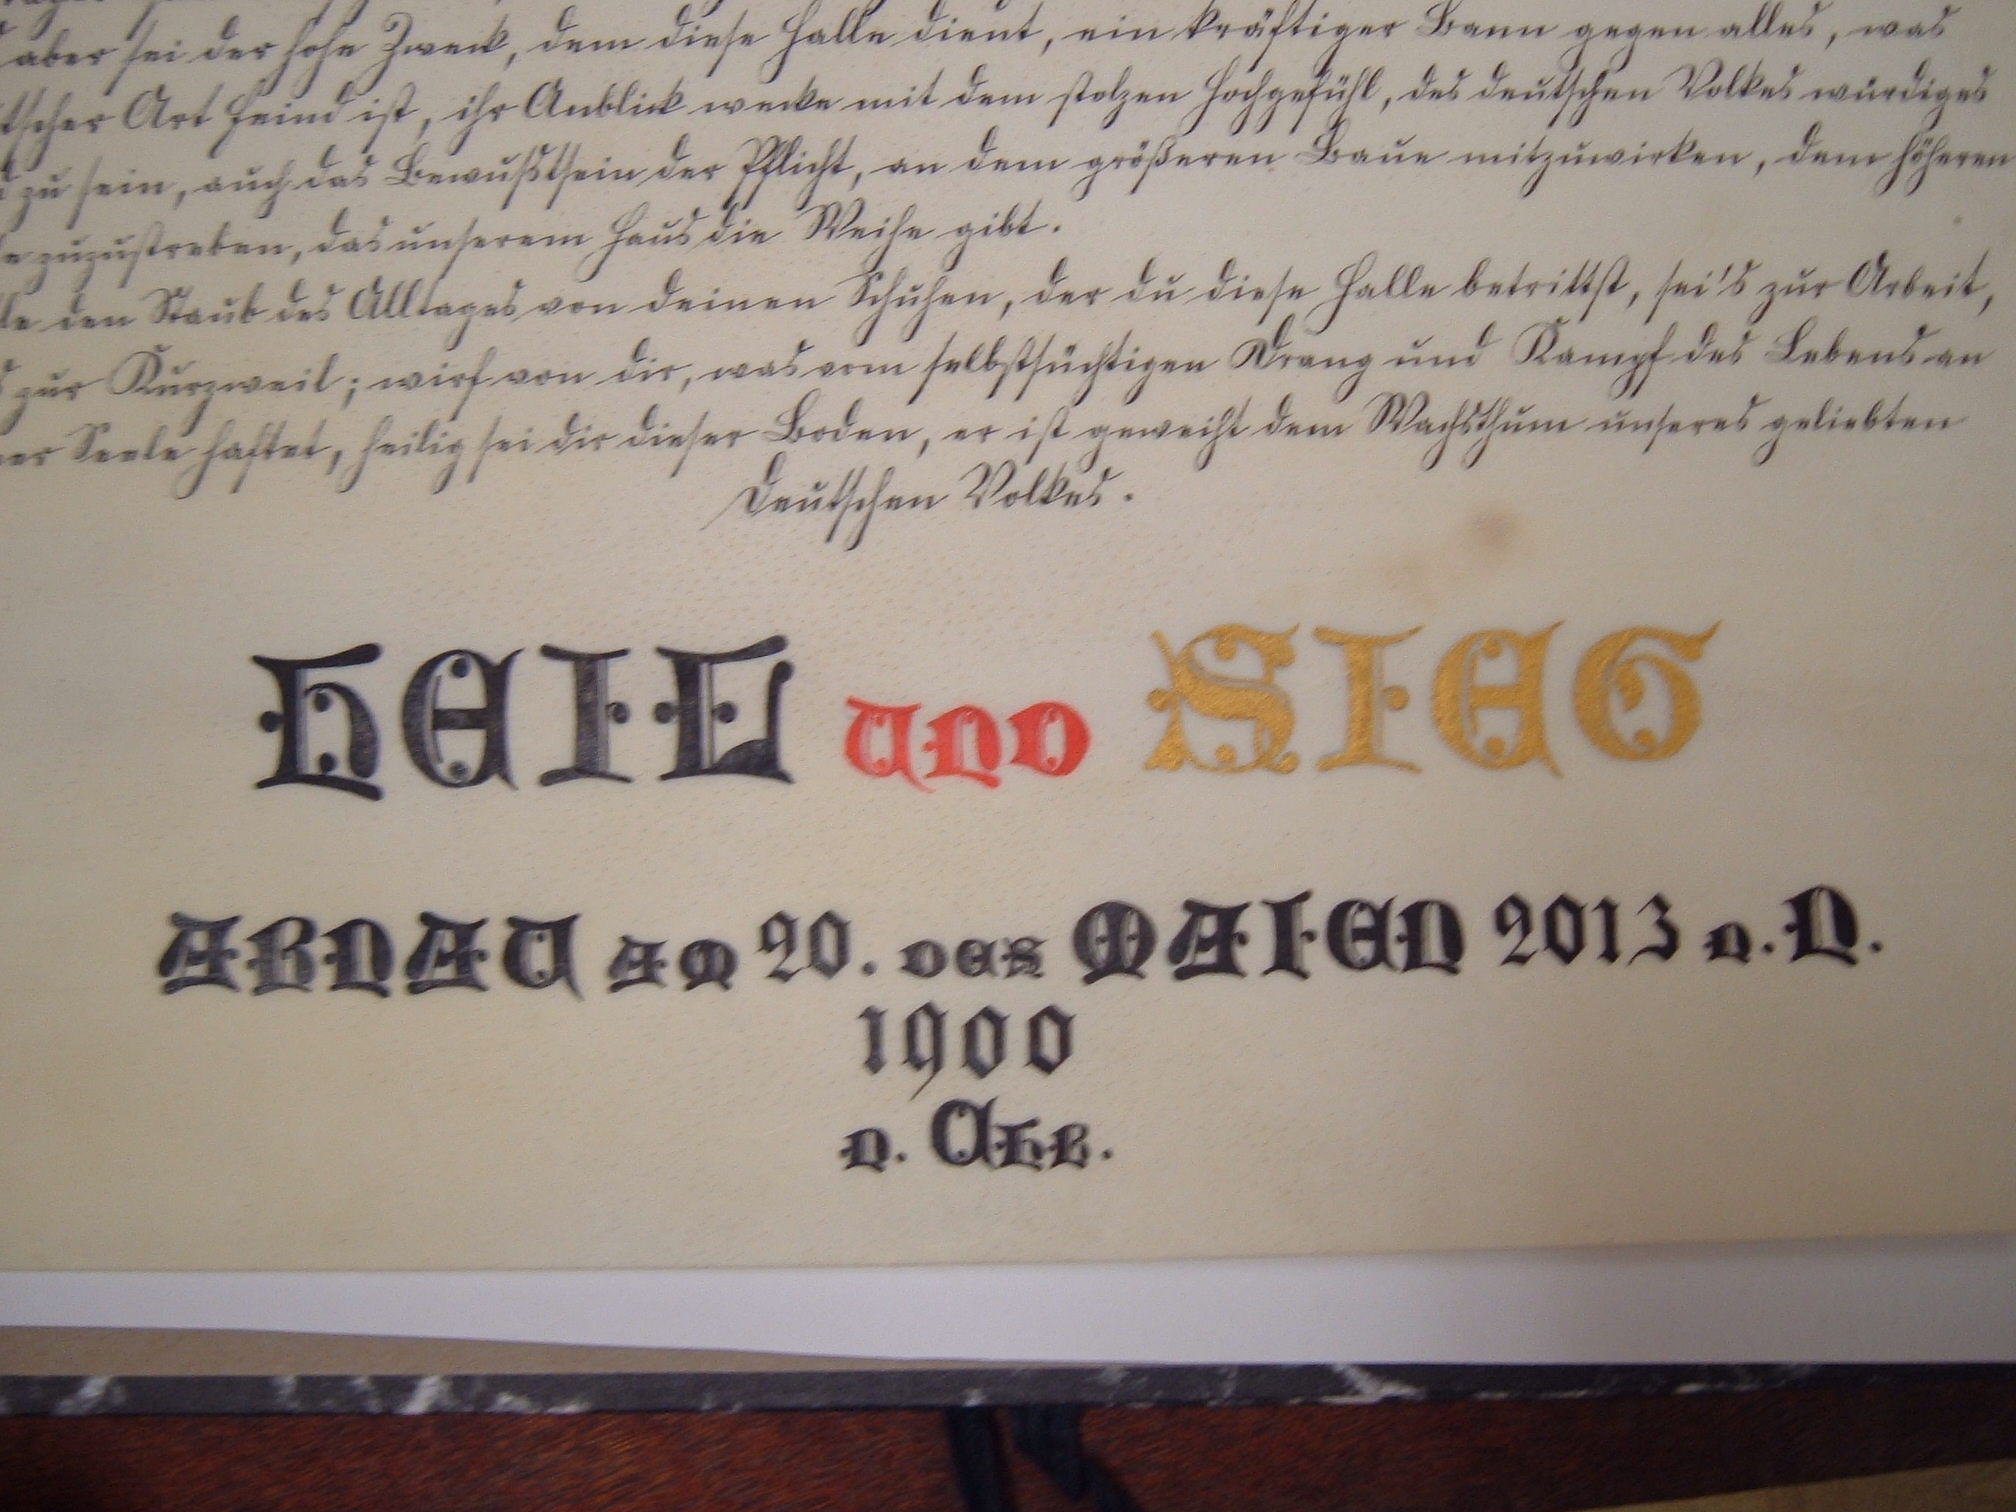 aber sei der hohe Zweck, dem diese Halle dient, ein kräftiger Bann gegen alles, was
tscher Art Feind ist, ihr Anblick wecke mit dem stolzen Hochgefühl, des deutschen Volkes würdiges
zu sein, auch das Bewußtsein der Pflicht, an dem größeren Baue mitzuwirken, dem höheren
le zuzustreben, das unserem Haus die Weihe gibt.
le den Staub des Alltages von deinen Schuhen, der du diese Halle betrittst, sei's zur Arbeit,
s zur Kurzweil; wirf von dir, was vom selbstsüchtigen Drang und Kampf des Lebens an
ner Seele haftet, heilig sei dir dieser Boden, er ist geweiht dem Wachsthum unseres geliebten
Deutschen Volkes.
HEIL UND SIEG
ARNAU AM 20. DES MAIEN 2013 N. N.
1900
N. Chr.